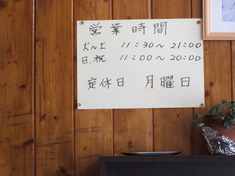 営業時間
火～土 11:30～21:00
日.祝 11:00～20:00
定休日 月曜日